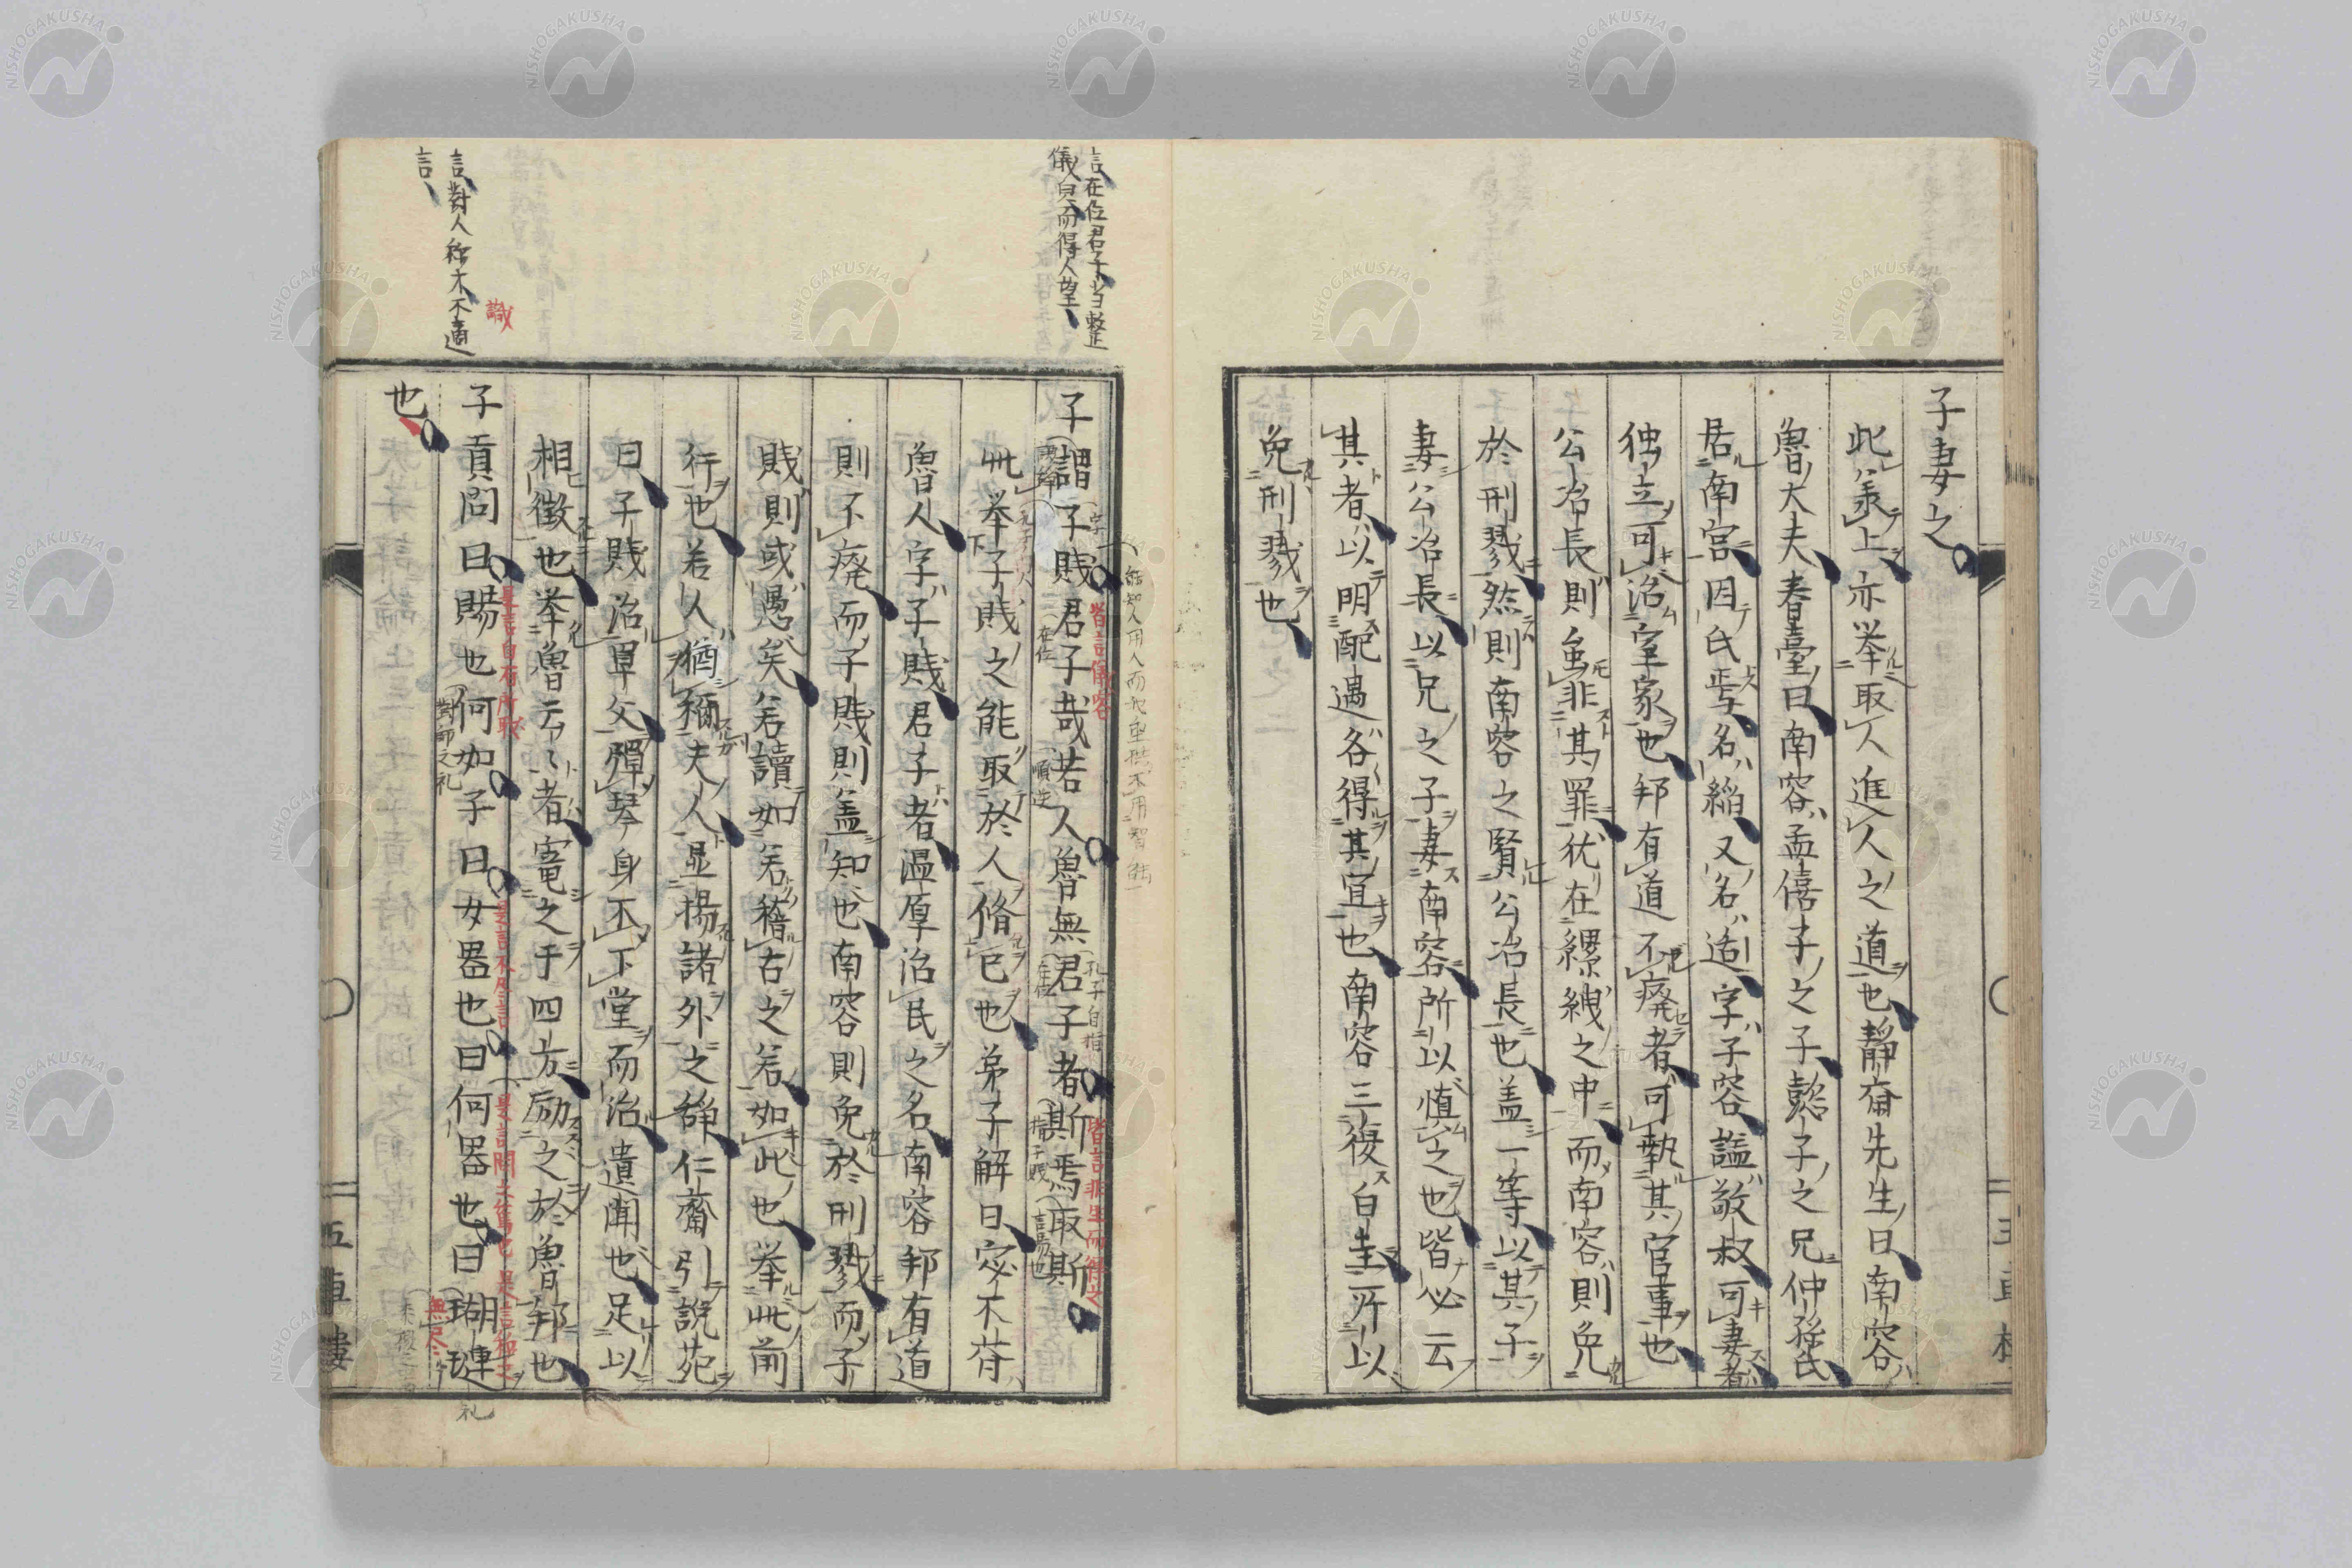 子妻之
此美上亦挙取人進人之道也静齋先生曰南容
魯大夫春臺曰南容孟僖子之子懿子之兄仲孫氏
居南宮因氏焉名縚又名适字子容謚敬叔可妻者
独立可治室家也邦有道不癈者可執其官事也
公冶長則虽非其罪犹在縲絏之中而南容則免
於刑戮然則南容之賢公冶長也盖一等以其子
妻公冶長以兄之子妻南容所以慎之也皆必云
其者以明配遇各得其宜也南容三復白圭所以
免刑戮也
言在位君子当整
儀皃而得人望
子謂子賎君子哉若人魯無君子者斯焉取斯
此挙子賎之能取於人脩已也弟子解曰宓不斉
魯人字子賎君子者温厚治民之名南容邦有道
則不癈而子賎則盖知也南容則免於刑戮而子
賎則或愚矣若讀如若稽古之若如此也挙此前
行也若人猶稱夫人显揚諸外之辞仁齋引説苑
曰子賎治單父彈琴身不下堂而治遺聞也足以
相徴也挙魯云々者寔之于四方励之於魯邦也
子貢問曰賜也何如子曰女器也曰何器也曰瑚璉
也
皆言儀容
孔子自指
指子賎
皆言非生而得之
是言自有所取
對師之礼
是言不尽言
言對人称木不適
言
識
五車樓